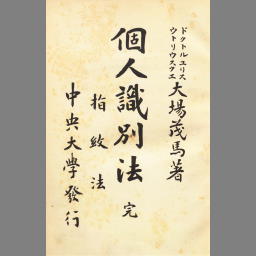 ドクトルユリス
ウトリウスクエ
大場茂馬著
個人識別法 完
指紋法
中央大學發行